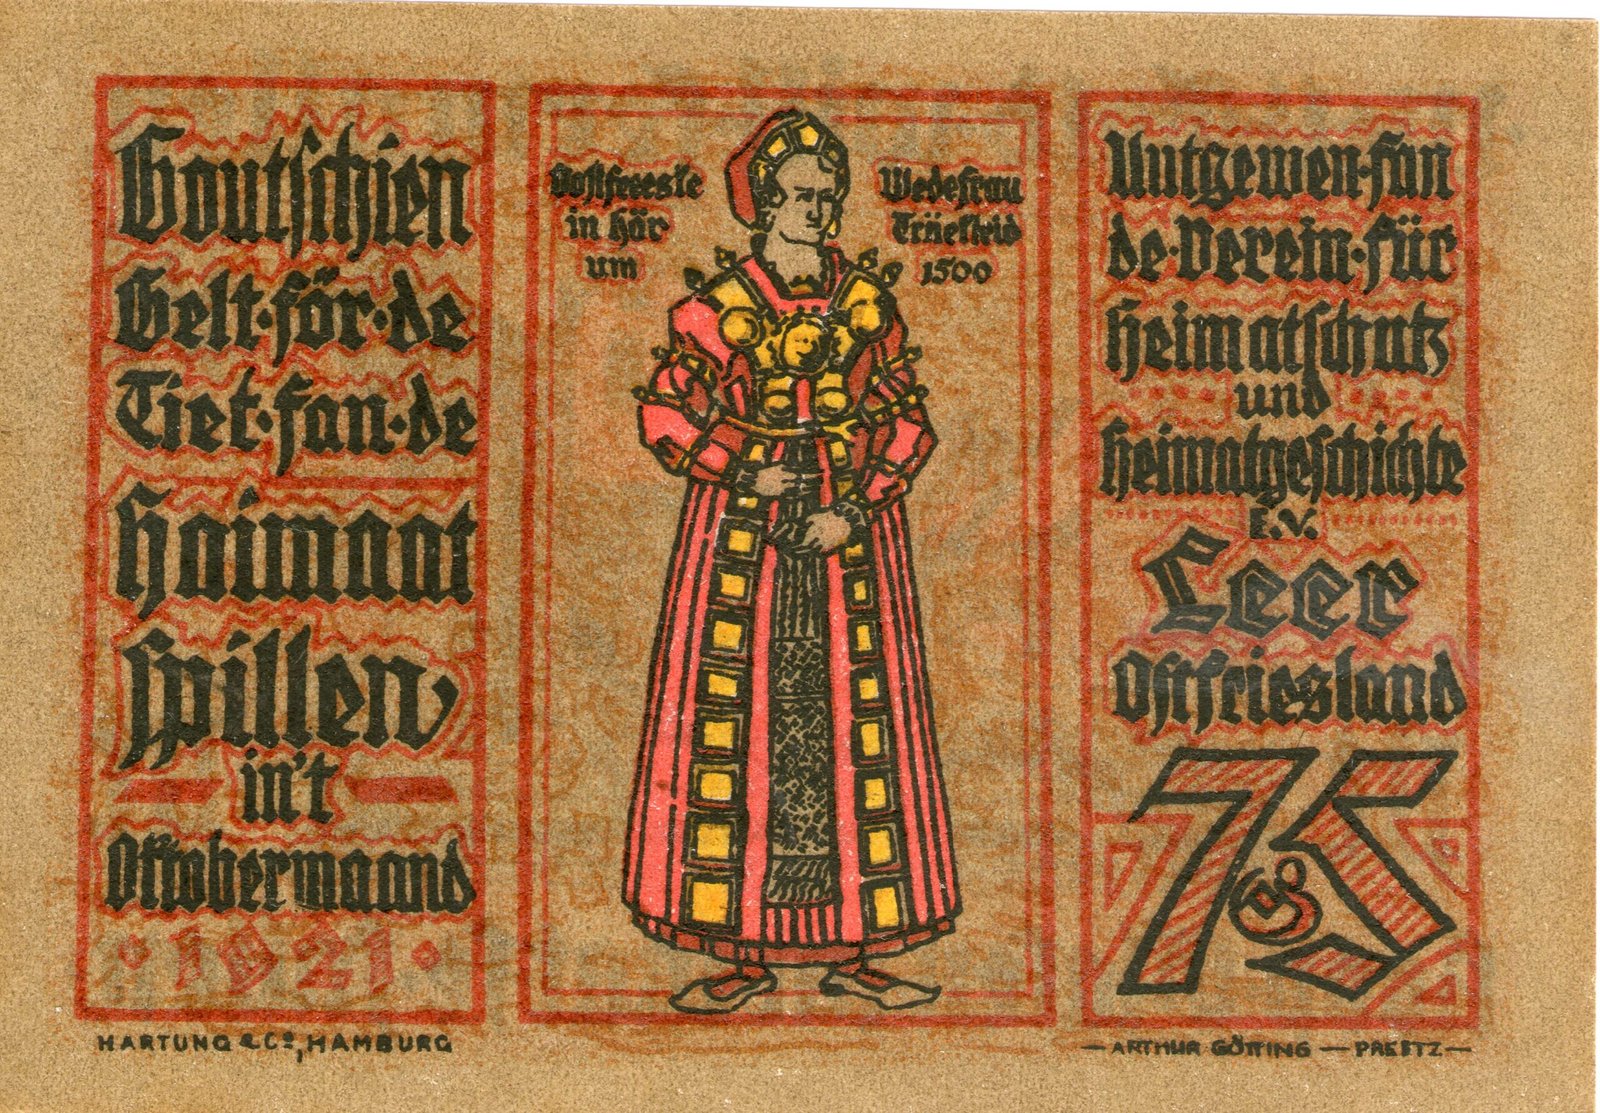 Goutschien
Gelt·för·de
Tiet·fan·de
Haimaat
spillen,
in't
Oktobermaand
·1921·
HARTUNG & Co, HAMBURG
Oostfreeske Wedefrau
in här Träekleid
um 1500
Uutgewen·fan
de·Verein·für
Heimatschutz
und
Heimatgeschichte
E.V.
Leer
Ostfriesland
75
— ARTHUR GÖTTING — PREETZ —